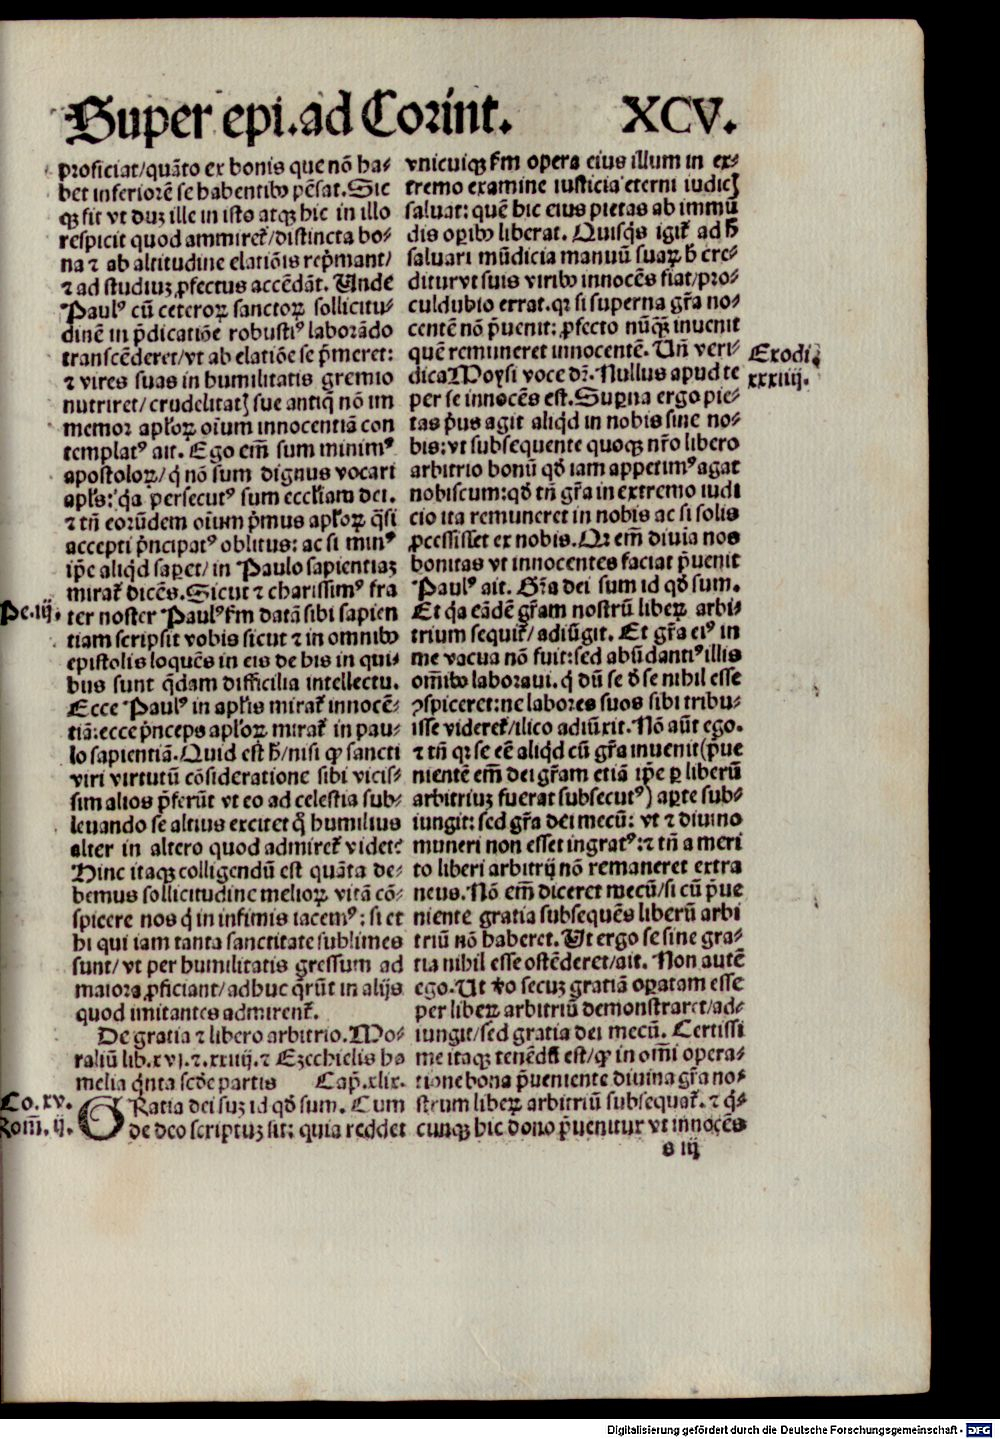 Super epi.ad Corint. XCV.
proficiat/quãto ex bonis que nõ ha⸗
bet inferiorẽ se habentibꝰ pẽsat. Sic
qꝫ fit vt duꝫ ille in isto atqꝫ hic in illo
respicit quod ammiret᷑/distincta bo⸗
na ⁊ ab altitudine elatiõis rep̃mant/
⁊ ad studiuꝫ ꝓfectus accẽdãt. Unde
Paulꝰ cũ ceteroꝝ sanctoꝝ sollicitu⸗
dinẽ in p̃dicatiõe robustiꝰ laborãdo
transcẽderet/vt ab elatiõe se p̃meret:
⁊ vires suas in humilitatis gremio
nutriret/crudelitatꝭ sue antiq̃ nõ im
memor apl̃oꝝ oim̃ innocentiã con
templatꝰ ait. Ego em̃ sum minimꝰ
apostoloꝝ/q̇ nõ sum dignus vocari
apl̃s: q̇a persecutꝰ sum eccl̃iam dei.
⁊ tñ eorũdem oim̃ p̃mus apl̃oꝝ q̃si
accepti p̃ncipatꝰ oblitus: ac si minꝰ
ip̃e aliq̇d saꝑet/in Paulo sapientiaꝫ
mirat᷑ dicẽs. Sicut ⁊ charissimꝰ fra
Pe.iij. ter noster Paulꝰ s̃m datã sibi sapien
tiam scripsit vobis sicut ⁊ in omnibꝰ
epistolis loquẽs in eis de his in qui⸗
bus sunt q̃dam difficilia intellectu.
Ecce Paulꝰ in apl̃is mirat᷑ innocẽ⸗
tiã: ecce p̃nceps apl̃oꝝ mirat᷑ in pau⸗
lo sapientiã. Quid est h̃/nisi ꝙ sancti
viri virtutũ cõsideratione sibi vicis⸗
sim alios p̃ferũt vt eo ad celestia sub⸗
leuando se altius excitet q̃ humilius
alter in altero quod admiret᷑ videt:
Hinc itaqꝫ colligendũ est quãta de⸗
bemus sollicitudine melioꝝ vitã cõ⸗
spicere nos q̇ in infimis iacemꝰ: si et
hi qui iam tanta sanctitate sublimes
sunt/vt per humilitatis gressum ad
maiora ꝓficiant/adhuc q̃rũt in alijs
quod imitantes admirent᷑.
De gratia ⁊ libero arbitrio. Mo⸗
raliũ lib.xvj.⁊.xxiiij.⁊ Ezechielis ho
melia q̇nta scḋe partis Cap̃.xlix.
Co.xv. GRatia dei suꝫ id qḋ sum. Cum
Rom̃.ij. de deo scriptuꝫ sit: quia reddet
vnicuiqꝫ s̃m opera eius illum in ex⸗
tremo examine iusticia eterni iudicꝭ
saluat: quẽ hic eius pietas ab immũ
dis oꝑibꝰ liberat. Quisq̇s igit᷑ ad h̃
saluari mũdicia manuũ suaꝝ h̃ cre⸗
ditur vt suis viribꝰ innocẽs fiat/pro⸗
culdubio errat. qꝛ si superna gr̃a no⸗
centẽ nõ p̃uenit: ꝓfecto nũqꝫ inuenit
quẽ remuneret innocentẽ. Uñ veri⸗ Exodi.
dica Moysi voce dr̃. Nullus apud te xxxiiij.
per se innocẽs est. Suꝑna ergo pie⸗
tas p̃us agit aliq̇d in nobis sine no⸗
bis: vt subsequente quoqꝫ nr̃o libero
arbitrio bonũ qḋ iam appetimꝰ agat
nobiscum: qḋ tñ gr̃a in extremo iudi
cio ita remuneret in nobis ac si solis
ꝓcessisset ex nobis. Qꝛ em̃ diuia nos
bonitas vt innocentes faciat p̃uenit
Paulꝰ ait. Gr̃a dei sum id qḋ sum.
Et q̇a eãdẽ gr̃am nostrũ libeꝝ arbi⸗
trium sequit᷑/adiũgit. Et gr̃a eiꝰ in
me vacua nõ fuit: sed abũdantiꝰ illis
om̃ibꝰ laboraui. q̇ dũ se ḋ se nihil esse
ꝯspiceret: ne labores suos sibi tribu⸗
isse videret᷑/ilico adiũxit. Nõ aũt ego.
⁊ tñ qꝛ se eẽ aliq̇d cũ gr̃a inuenit(p̃ue
nientẽ em̃ dei gr̃am etiã ip̃e ꝑ liberũ
arbitriuꝫ fuerat subsecutꝰ) aꝑte sub⸗
iungit: sed gr̃a dei mecũ: vt ⁊ diuino
muneri non esset ingratꝰ: ⁊ tñ a meri
to liberi arbitrij nõ remaneret extra
neus. Nõ em̃ diceret mecũ/si cũ p̃ue
niente gratia subsequẽs liberũ arbi
triũ nõ haberet. Ut ergo se sine gra⸗
tia nihil esse ostẽderet/ait. Non autẽ
ego. Ut v̾o secuꝫ gratiã oꝑatam esse
per libeꝝ arbitriũ demonstraret/ad⸗
iungit/sed gratia dei mecũ. Certissi
me itaqꝫ tenẽdũ est/ꝙ in om̃i opera⸗
tione bona p̃ueniente diuina gr̃a no⸗
strum libeꝝ arbitriũ subsequat᷑. ⁊ q̇⸗
cunqꝫ hic dono p̃uenitur vt innocẽs
s iij
Digitalisierung gefördert durch die Deutsche Forschungsgemeinschaft - DFG